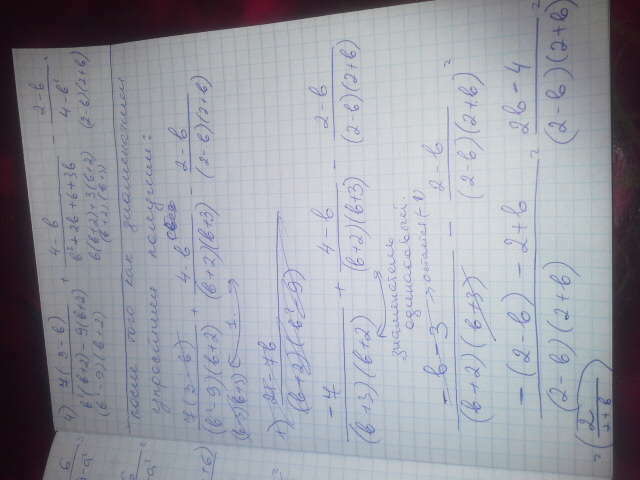 4) 7(3-b) / b²(b+2)-9(b+2) + 4-b / b²+2b+b+3b - 2-b / 4-b²
(b²-9)(b+2) b(b+2)+3(b+2) (2-b)(2+b)
(b+2)(b+3)
после того как знаменатели
упростили получим:
7(3-b) / (b²-9)(b+2) + 4-b / (b+2)(b+3) - 2-b / (2-b)(2+b)
(b-3)(b+3) 1.
1) 21-7b / (b+2)(b²-9)
-7 / (b+3)(b+2) + 4-b / (b+2)(b+3) - 2-b / (2-b)(2+b)
знаменатель
одинаковый.
-b-3 / (b+2)(b+3) → остаётся (-1) - 2-b / (2-b)(2+b) =
-(2-b)-2+b / (2-b)(2+b) = 2b-4 / (2-b)(2+b) =
= (2 / 2+b)